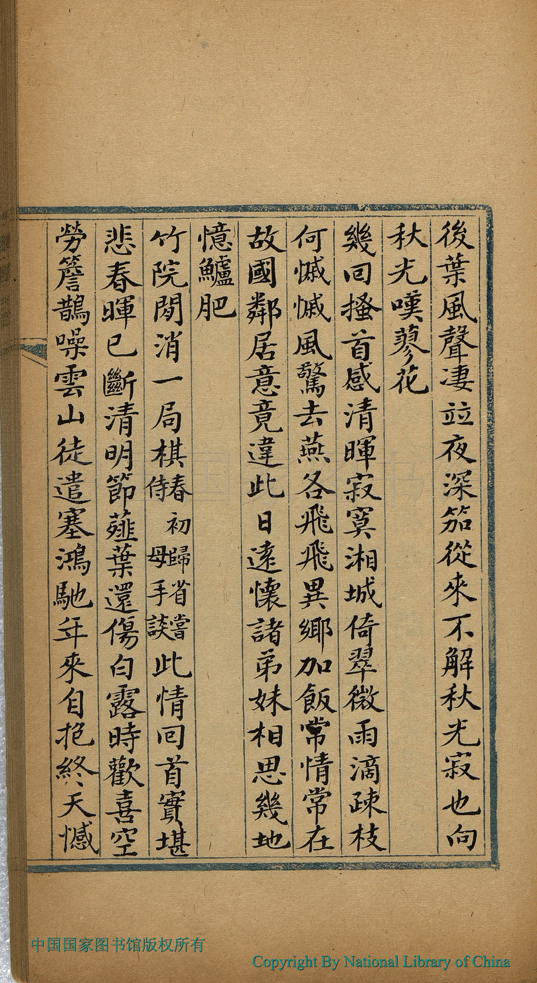 後葉風聲凄竝夜深笳從來不解秋光寂也向
秋光嘆蓼花
幾回搔首感清暉寂寞湘城倚翠微雨滴疎枝
何慽慽風驚去燕各飛飛異鄉加飯常情常在
故國鄰居意竟違此日遠懷諸弟妹相思幾地
憶鱸肥
竹院閒消一局棋春初歸省嘗侍母手談此情回首實堪
悲春暉已斷清明節薤葉還傷白露時歡喜空
勞簷鵲噪雲山徒遣塞鴻馳年來自抱終天憾
中国国家图书馆版权所有
Copyright By National Library of China